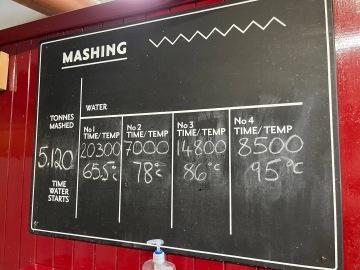 MASHING
WATER
TONNES
MASHED
5.120
TIME
WATER
STARTS
No 1
TIME/TEMP
20300
65.5°C
No 2
TIME/TEMP
7000
78°C
No 3
TIME/TEMP
14800
86°C
No 4
TIME/TEMP
8500
95°C